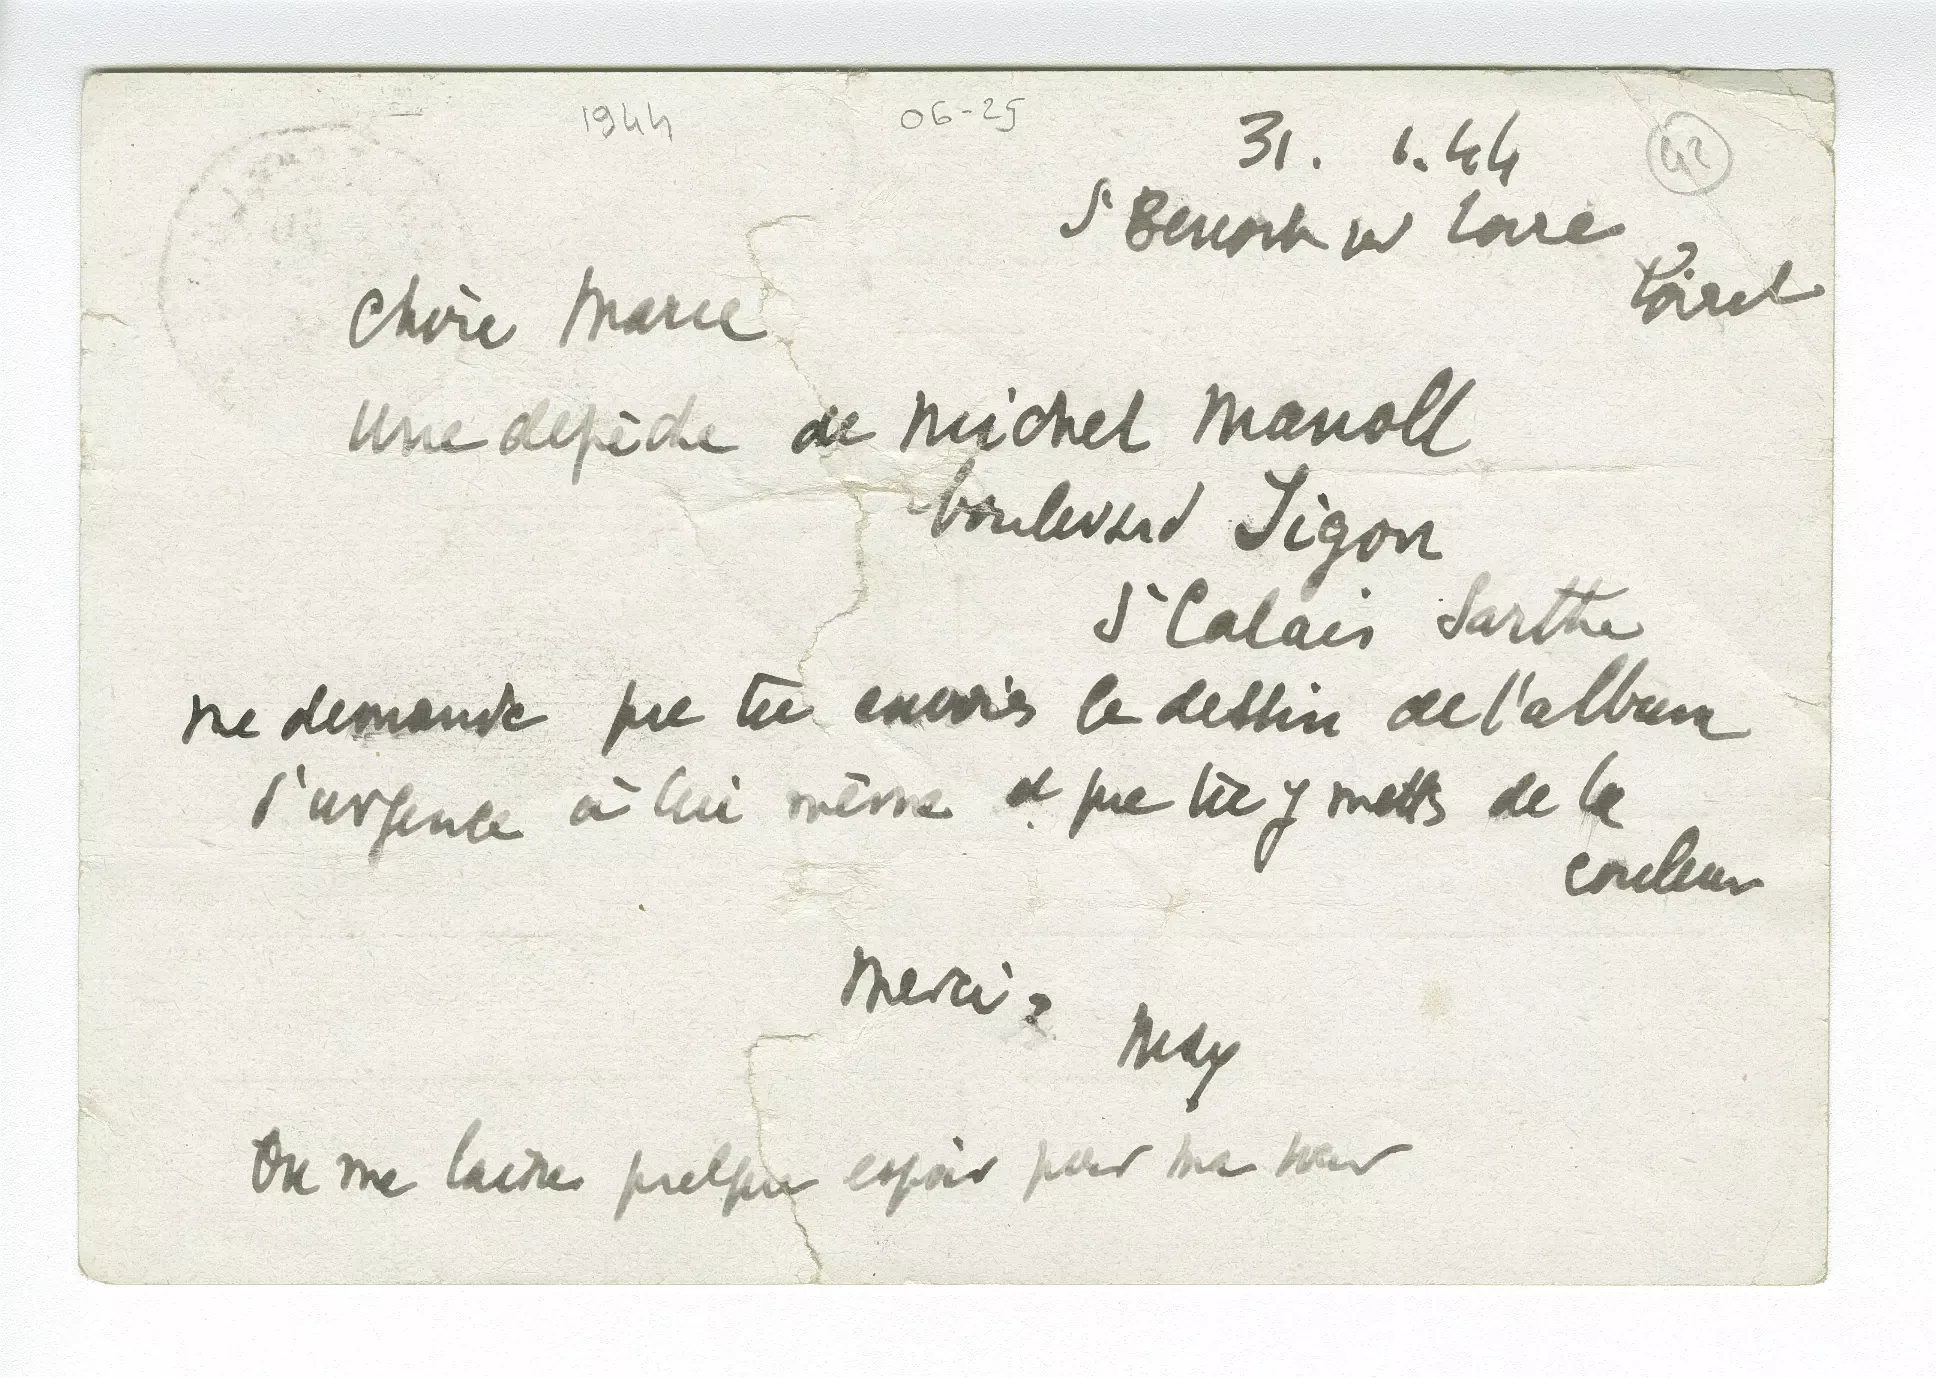 1944 06-25
31. 1.44
42
St Benoit sur Loire
Loiret
Chère Marie
Une depèche de Michel Manoll
boulevard Jigon
St Calais Sarthe
me demande que tu envoies le dessin de l'album
d'urgence à lui même et que tu y mettes de la
couleur
Merci.
Max
On me laisse presque espoir pour ma soeur